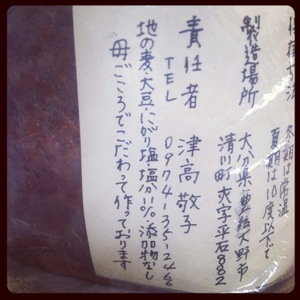 保存方法
冬期は常温
夏期は10度以下で
製造場所
大分県・豊後大野市
清川町大字平石882
責任者 津高敬子
TEL 0974-35-2468
地の麦・大豆・にがり塩・塩分11%・添加物なし
母ごころでこだわって作っております